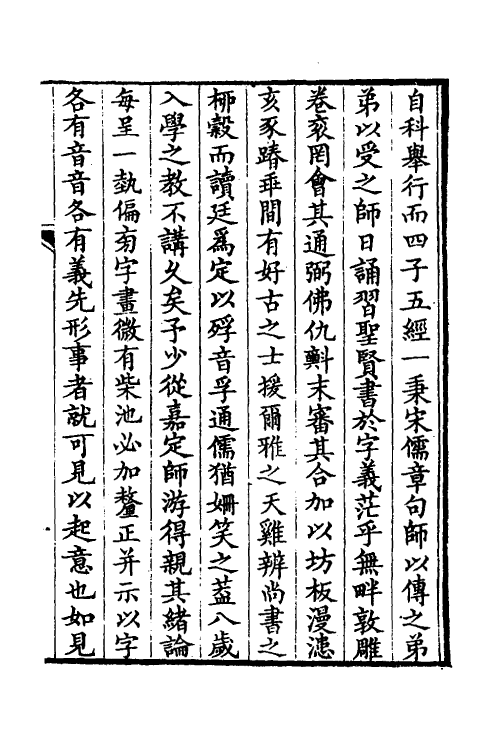 自科舉行而四子五經一秉宋儒章句師以傳之弟
弟以受之師日誦習聖賢書於字義茫乎無畔敦雕
卷衮罔會其通弼佛仇㪺末審其合加以坊板漫漶
亥豕踳乖間有好古之士援爾雅之天雞辨尚書之
桺穀而讀廷為定以殍音孚通儒猶姍笑之葢八歲
入學之教不講久矣予少從嘉定師游得親其緒論
每呈一埶偏㫄字畫微有柴池必加鼇正并示以字
各有音音各有義先形事者就可見以起意也如見